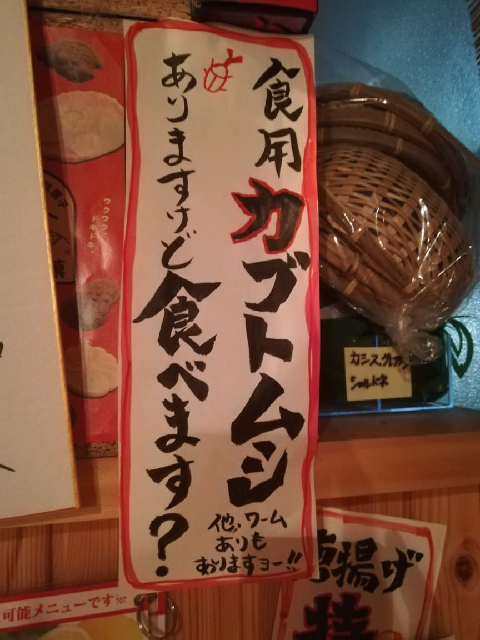 食用カブトムシ
ありますけど食べます?
他、ワーム
ありも
おりますヨー!!
ワクワク、
ドキドキ。
シャルドネ
揚げ
可能メニューです※